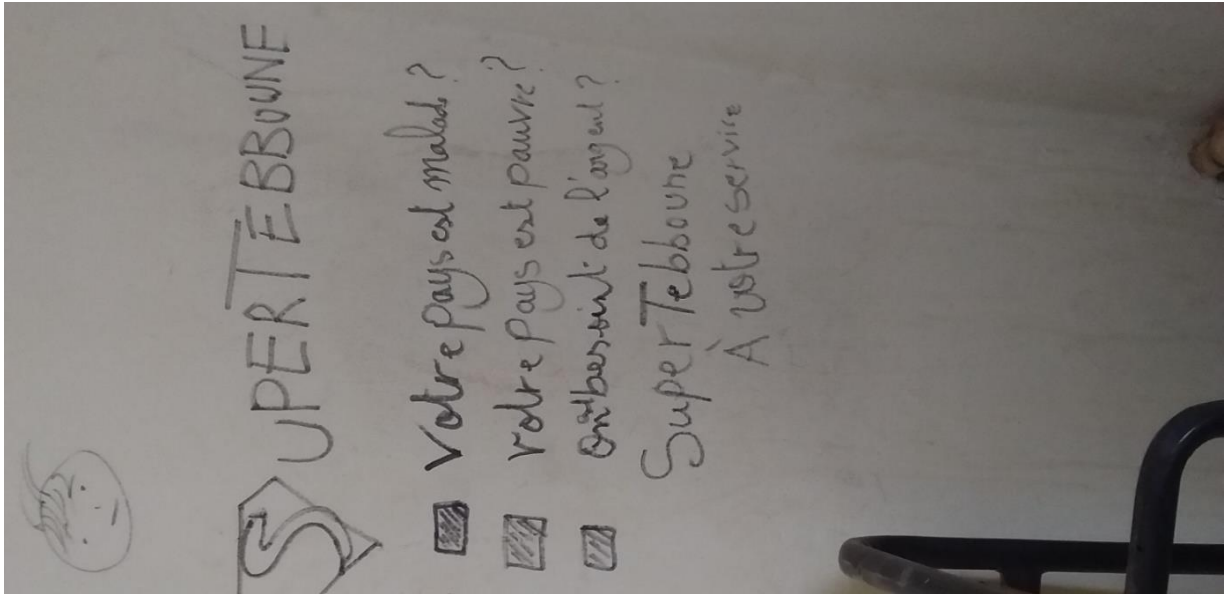 SUPERTEBBOUNE
Votre pays est malade?
Votre pays est pauvre?
besoint de l'argent?
SuperTebboune
À votre service